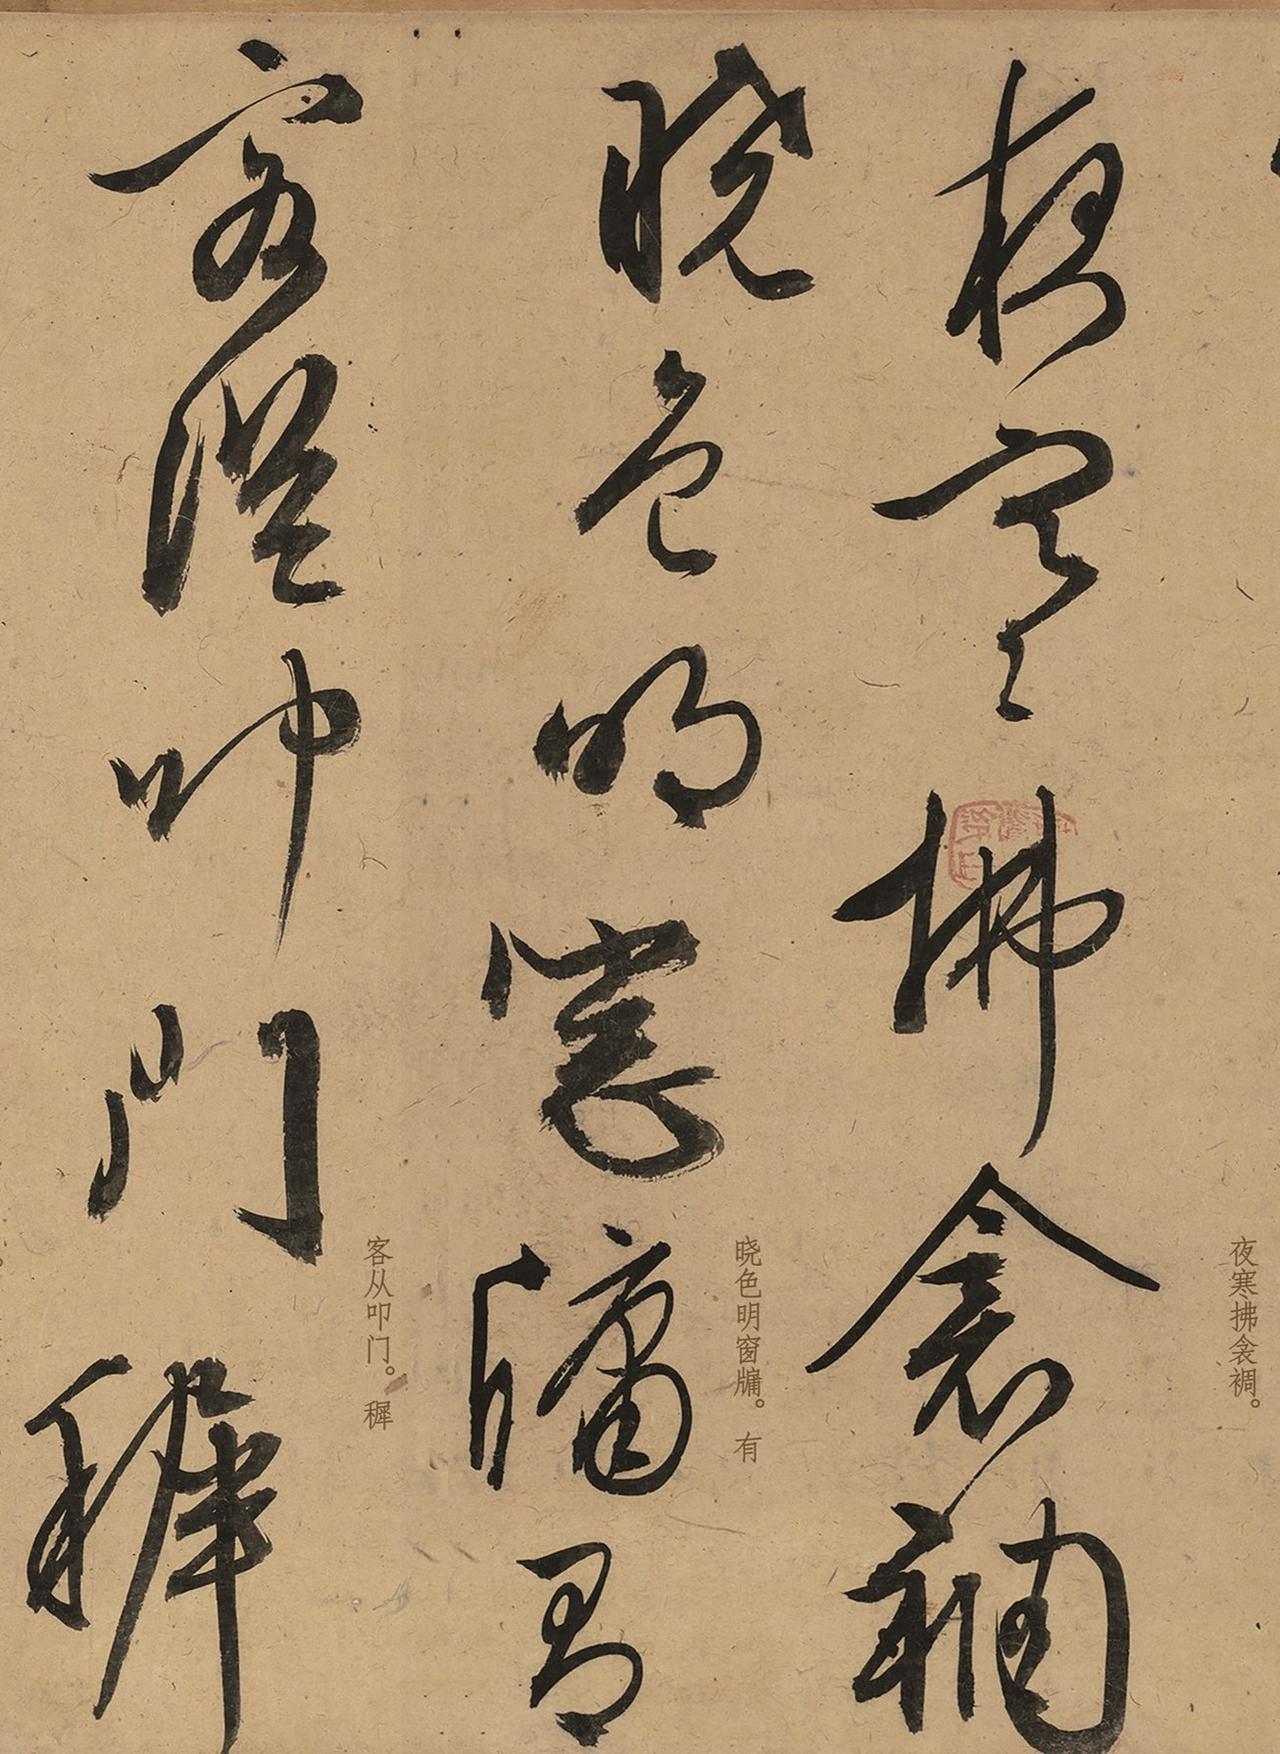 夜寒拂衾裯
夜寒拂衾裯。
曉色明窻牗有
晓色明窗牗。有
客從叩門稺
客从叩门。稺